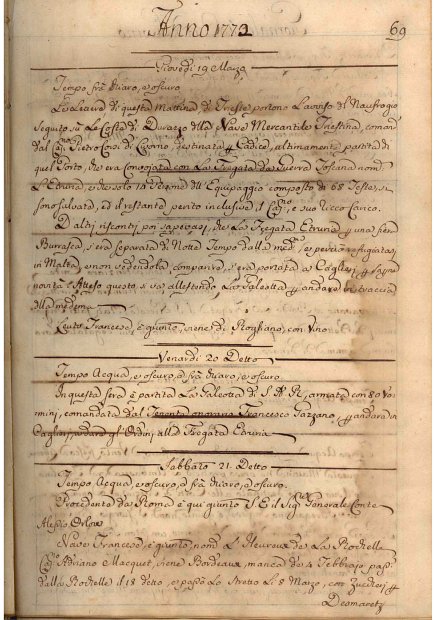 Anno 1772
69
Giovedì 19 Marzo
Tempo frà chiaro, e oscuro
Le Lettere di questa Mattina di Trieste portono L'avviso del Naufragio
seguito sù Le Coste di Durazzo della Nave Mercantile Triestina, coman:
dal Cap. Pietro destinata p Cadice, ultimamente partita di
quel Porto, che era Convojata con La Fregata da Guerra Toscana nom.
L'Etruria, e che solo 10 Persone dell'Equipaggio composto di 68 Teste, si
sono salvate, ed il restante perito inclusive il Cap.no, e suo ricco Carico.
D'altri riscontri poi sapevasi, che La Fregata Etruria p una fiera
Burrasca, s'era separata di Notte Tempo dalla med.ma, e perciò rifugiatasi
in Malta, e non vedendola comparire, s'era portata a Cagliari
Atteso questo, si và allestendo La Galeotta p andare in traccia
della medema
Leuto Francese, è giunto, viene di Rogliano, con Vino
Venerdì 20 Detto
Tempo Acqua, e oscuro, e frà chiaro, e oscuro
In questa sera è partita La Galeotta di S. A. R., armata con 80 Uo:
mini, comandata dal Tenente onorario Francesco p andare in
Cagliari, a dare gl'Ordini alla Fregata Etruria
Sabbato 21 Detto
Tempo Acqua, e oscuro, e frà chiaro, e oscuro
Procedente da Roma è qui giunto S. E. il Sig.re Generale Conte
Alessio Orlow
Nave Francese, è giunto, nom. L'Heureux de La Rochelle
Cap.no Adriano Macquet, viene Bordeaux, manca da 4 Febbrajo pass.
dalla Rochelle il 18 detto, e passò Lo Stretto Li 8 Marzo, con Zuccheri p
Desmaretz